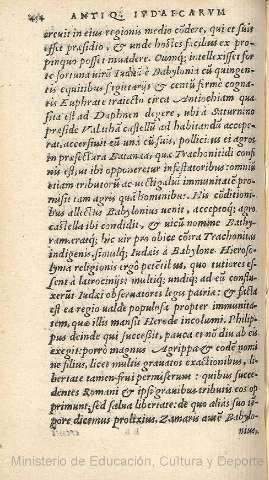 454 ANTIQ. IVDAICARVM
crevit in eius regionis medio cōdere, qui et suis
esset præsidio, & unde hostes facilius ex pro-
pinquo posset inuadere. Cunq; intellexisset for
te fortuna uirū Iudæū è Babylonia cū quingen-
tis equitibus sagittarijs & centū fermè cogna-
tis Euphrate traiecto circa Antiochiam
sita est ad Daphnen degere, ubi à Saturnino
præside Valathā castellū ad habitandū accepe-
rat, accersiuit eū unà cū suis, pollicitus et agros
in præfectura Batanæa, quæ Trachonitidi confi
nis est, ut ibi opponeretur infestatoribus: omniū
etiam tributorū ac uectigaliū immunitatē pro-
misit tam agris quàm hominibus. His cōditioni-
bus allectus Babylonius uenit, acceptoq; agro
castella ibi condidit, & uicū nomine Bathy-
ram. eratq; hic uir pro obice cōtra Trachonitas
indigenis, simulq; Iudæis à Babylone Hieroso-
lyma religionis ergò petētibus, quo tutiores es-
sent à latrocinijs: multiq; undiq; ad eū conflu-
xerūt Iudæi obseruatores legis patriæ: & facta
est ea regio ualde populosa propter immunita-
tem, quæ illis mansit Herode incolumi. Philip-
pus deinde qui successit, pauca et nō diu ab eis
exegit: porrò magnus Agrippa & eodē nomi
ne filius, licet multis grauatos exactionibus, li-
bertate tamen frui permiserunt: quibus succe-
dentes Romani & ipsi grauibus tributis eos op
primunt, sed salua libertate: de quo aliàs suo tē-
pore dicemus prolixius. Zamaris autē Babylo-
nius,
Ministerio de Educación, Cultura y Deporte